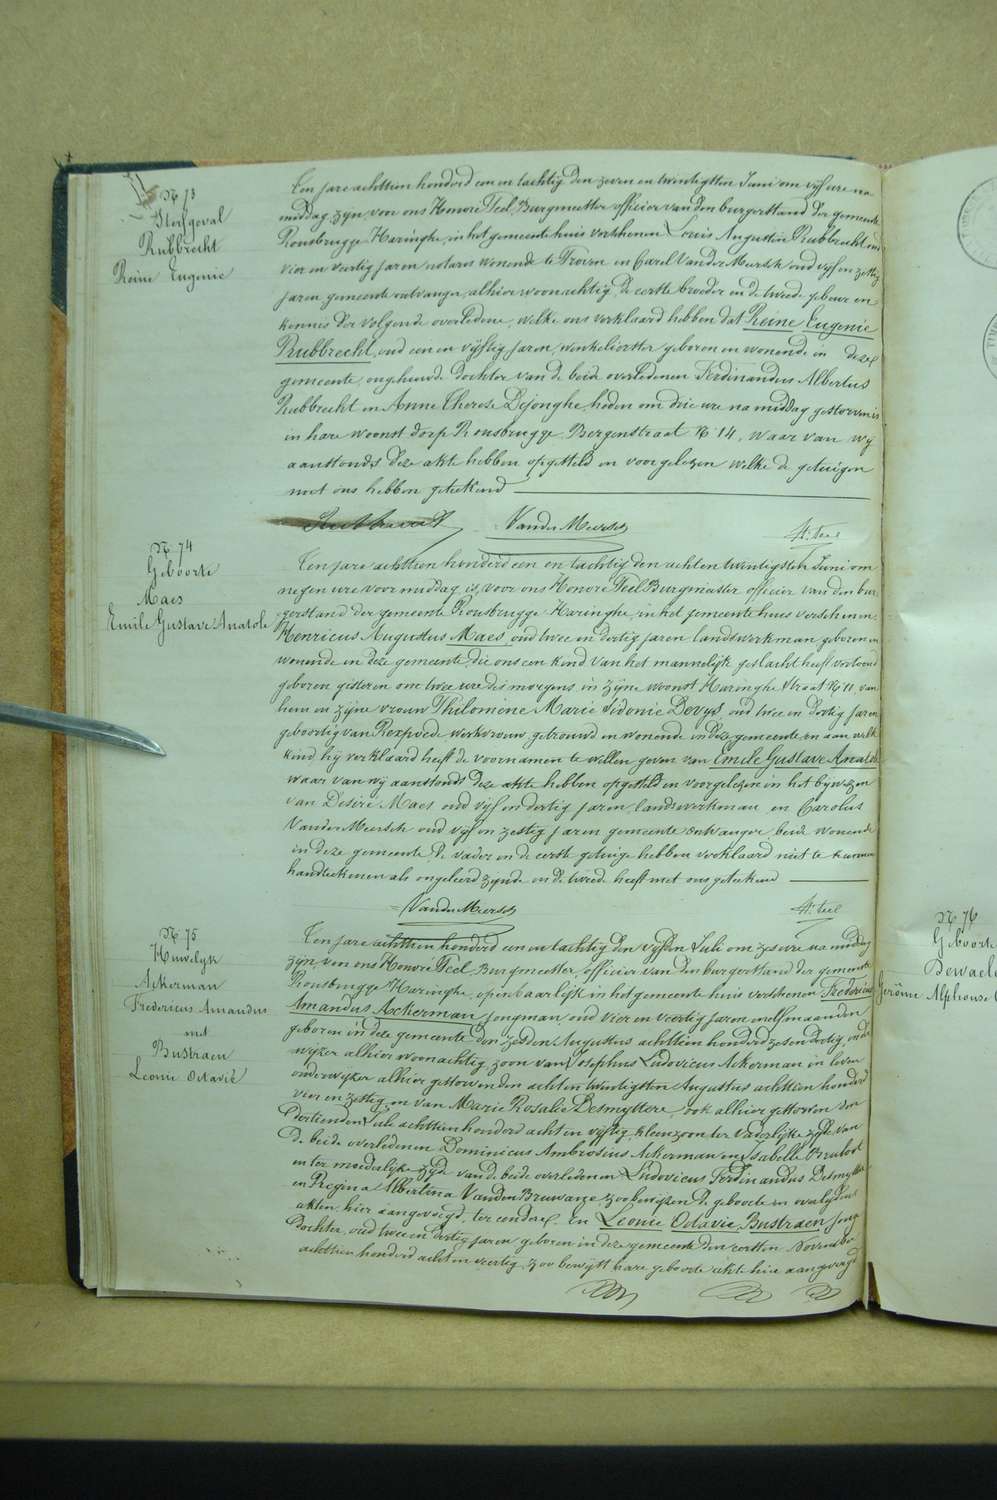 N° 73
Sterfgeval
Rubbrecht
Reine Eugenie
Ten jare achttien honderd een en tachtig den zeven en twintigsten Juni om vijf ure na
middag, zijn, voor ons Honoré Teel, Burgmeester officier van den burgerstand der gemeente
Rousbrugge Haringhe, in het gemeente huis verschenen Louis Augustin Rubbrecht oud
vier en veertig jaren notaris wonende te Proven en Carel Vander Meersch oud vijf en zestig
jaren, gemeente ontvanger, alhier woonachtig, De eerste broeder en de tweede gebuur en
kennis der volgende overledene, welke ons verklaard hebben dat Reine Eugenie
Rubbrecht, oud een en vijftig jaren, winkelierster geboren en wonende in deze
gemeente, ongehuwde dochter van de beide overledenen Ferdinandus Albertus
Rubbrecht en Anne Therese Dejonghe, heden om drie ure na middag gestorven is
in hare woonst dorp Rousbrugge, Bergenstraat N° 14, waar van wij
aanstonds deze akte hebben opgesteld en voorgelezen welke de getuigen
met ons hebben geteekend
Rubbrecht VanderMeersch H. Teel
N° 74
Geboorte
Maes
Emile Gustave Anatole
Ten jare achttien honderd een en tachtig den achten twintigsten Juni om
negen ure voor middag is, voor ons Honoré Teel Burgmeester officier van den bur
gerstand der gemeente Rousbrugge Haringhe, in het gemeente huis verschenen
Henricus Augustus Maes, oud twee en dertig jaren landswerkman geboren en
wonende in deze gemeente, die ons een kind van het mannelijk geslacht heeft vertoond
geboren gisteren om twee ure des morgens in zijne woonst Haringhe straat N° 11, van
hem en zijne vrouw Philomene Marie Sidonie Devys oud twee en dertig jaren
geboortig van Rexpoëde werkvrouw, getrouwd en wonende in deze gemeente en aan welk
kind hij verklaard heeft de voornamen te willen geven van Emile Gustave Anatole
waar van wij aanstonds deze akte hebben opgesteld en voorgelezen in het bijwezen
van Desiré Maes oud vijf en dertig jaren, landswerkman, en Carolus
VanderMeersch oud vijf en zestig jaren gemeente ontvanger, beide wonende
in deze gemeente, De vader en de eerste getuige hebben verklaard niet te kunnen
handteekenen als ongeleerd zijnde en de tweede heeft met ons geteekend
VanderMeersch H. Teel
N° 75
Huwelijk
Ackerman
Fredericus Amandus
met
Bustraen
Leonie Octavie
Ten jare achttien honderd een en tachtig den vijfden Juli om zes ure na middag
zijn, voor ons Honoré Teel, Burgmeester, officier van den burgerstand der gemeente
Rousbrugge Haringhe, openbaarlijk in het gemeente huis verschenen Fredericus
Amandus Ackerman jongman, oud vier en veertig jaren en elf maanden
geboren in deze gemeente den zesden Augustus achttien honderd zes en dertig onder
wijzer alhier woonachtig, zoon van Josephus Ludovicus Ackerman in leven
onderwijzer alhier gestorven den achten twintigsten Augustus achttien honderd
vier en zestig en van Marie Rosalie Desmyttere, ook alhier gestorven den
dertienden Juli achttien honderd acht en vijftig, kleinzoon ter vaderlijke zijde van
de beide overledenen Dominicus Ambrosius Ackerman en Isabelle Brutoot
en ter moederlijke zijde van de beide overledenen Ludovicus Ferdinandus Desmyttere
en Regina Albertina VandenBruwaene zoo bewijzen de geboorte en overlijdens
akten, hier aangevoegd, ter eender zijde. En Leonie Octavie Bustraen jonge
dochter, oud twee en dertig jaren geboren in deze gemeente den eersten November
achttien honderd acht en veertig, zoo bewijst hare geboorte akte hier aangevoegd
N° 76
Geboorte
Dewaele
Jerôme Alphonse